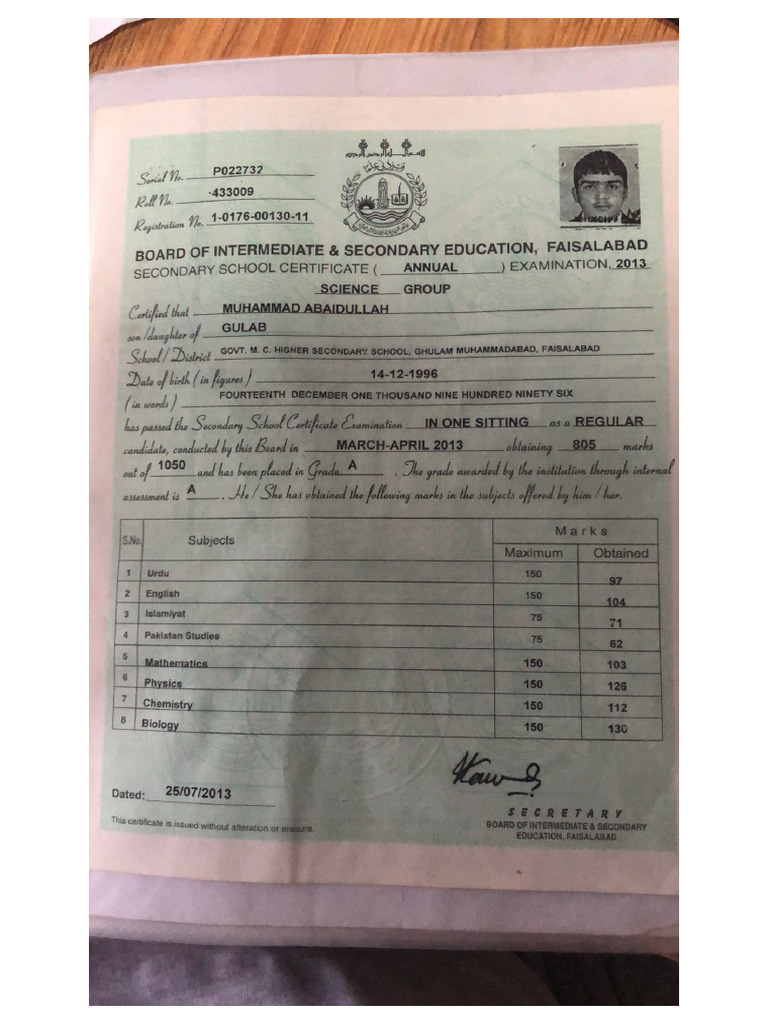 Serial No. P022732
Roll No. 433009
Registration No. 1-0176-00130-11
BOARD OF INTERMEDIATE & SECONDARY EDUCATION, FAISALABAD
SECONDARY SCHOOL CERTIFICATE ( ANNUAL ) EXAMINATION, 2013
SCIENCE GROUP
Certified that MUHAMMAD ABAIDULLAH
son/daughter of GULAB
School / District GOVT. M. C. HIGHER SECONDARY SCHOOL, GHULAM MUHAMMADABAD, FAISALABAD
Date of birth ( in figures ) 14-12-1996
( in words ) FOURTEENTH DECEMBER ONE THOUSAND NINE HUNDRED NINETY SIX
has passed the Secondary School Certificate Examination IN ONE SITTING as a REGULAR
candidate, conducted by this Board in MARCH-APRIL 2013 obtaining 805 marks
out of 1050 and has been placed in Grade A . The grade awarded by the institution through internal
assessment is A . He / She has obtained the following marks in the subjects offered by him / her.
S.No. Subjects Marks
Maximum Obtained
1 Urdu 150 97
2 English 150 104
3 Islamiyat 75 71
4 Pakistan Studies 75 62
5 Mathematics 150 103
6 Physics 150 126
7 Chemistry 150 112
8 Biology 150 130
Dated: 25/07/2013
SECRETARY
BOARD OF INTERMEDIATE & SECONDARY
EDUCATION, FAISALABAD
This certificate is issued without alteration or erasure.